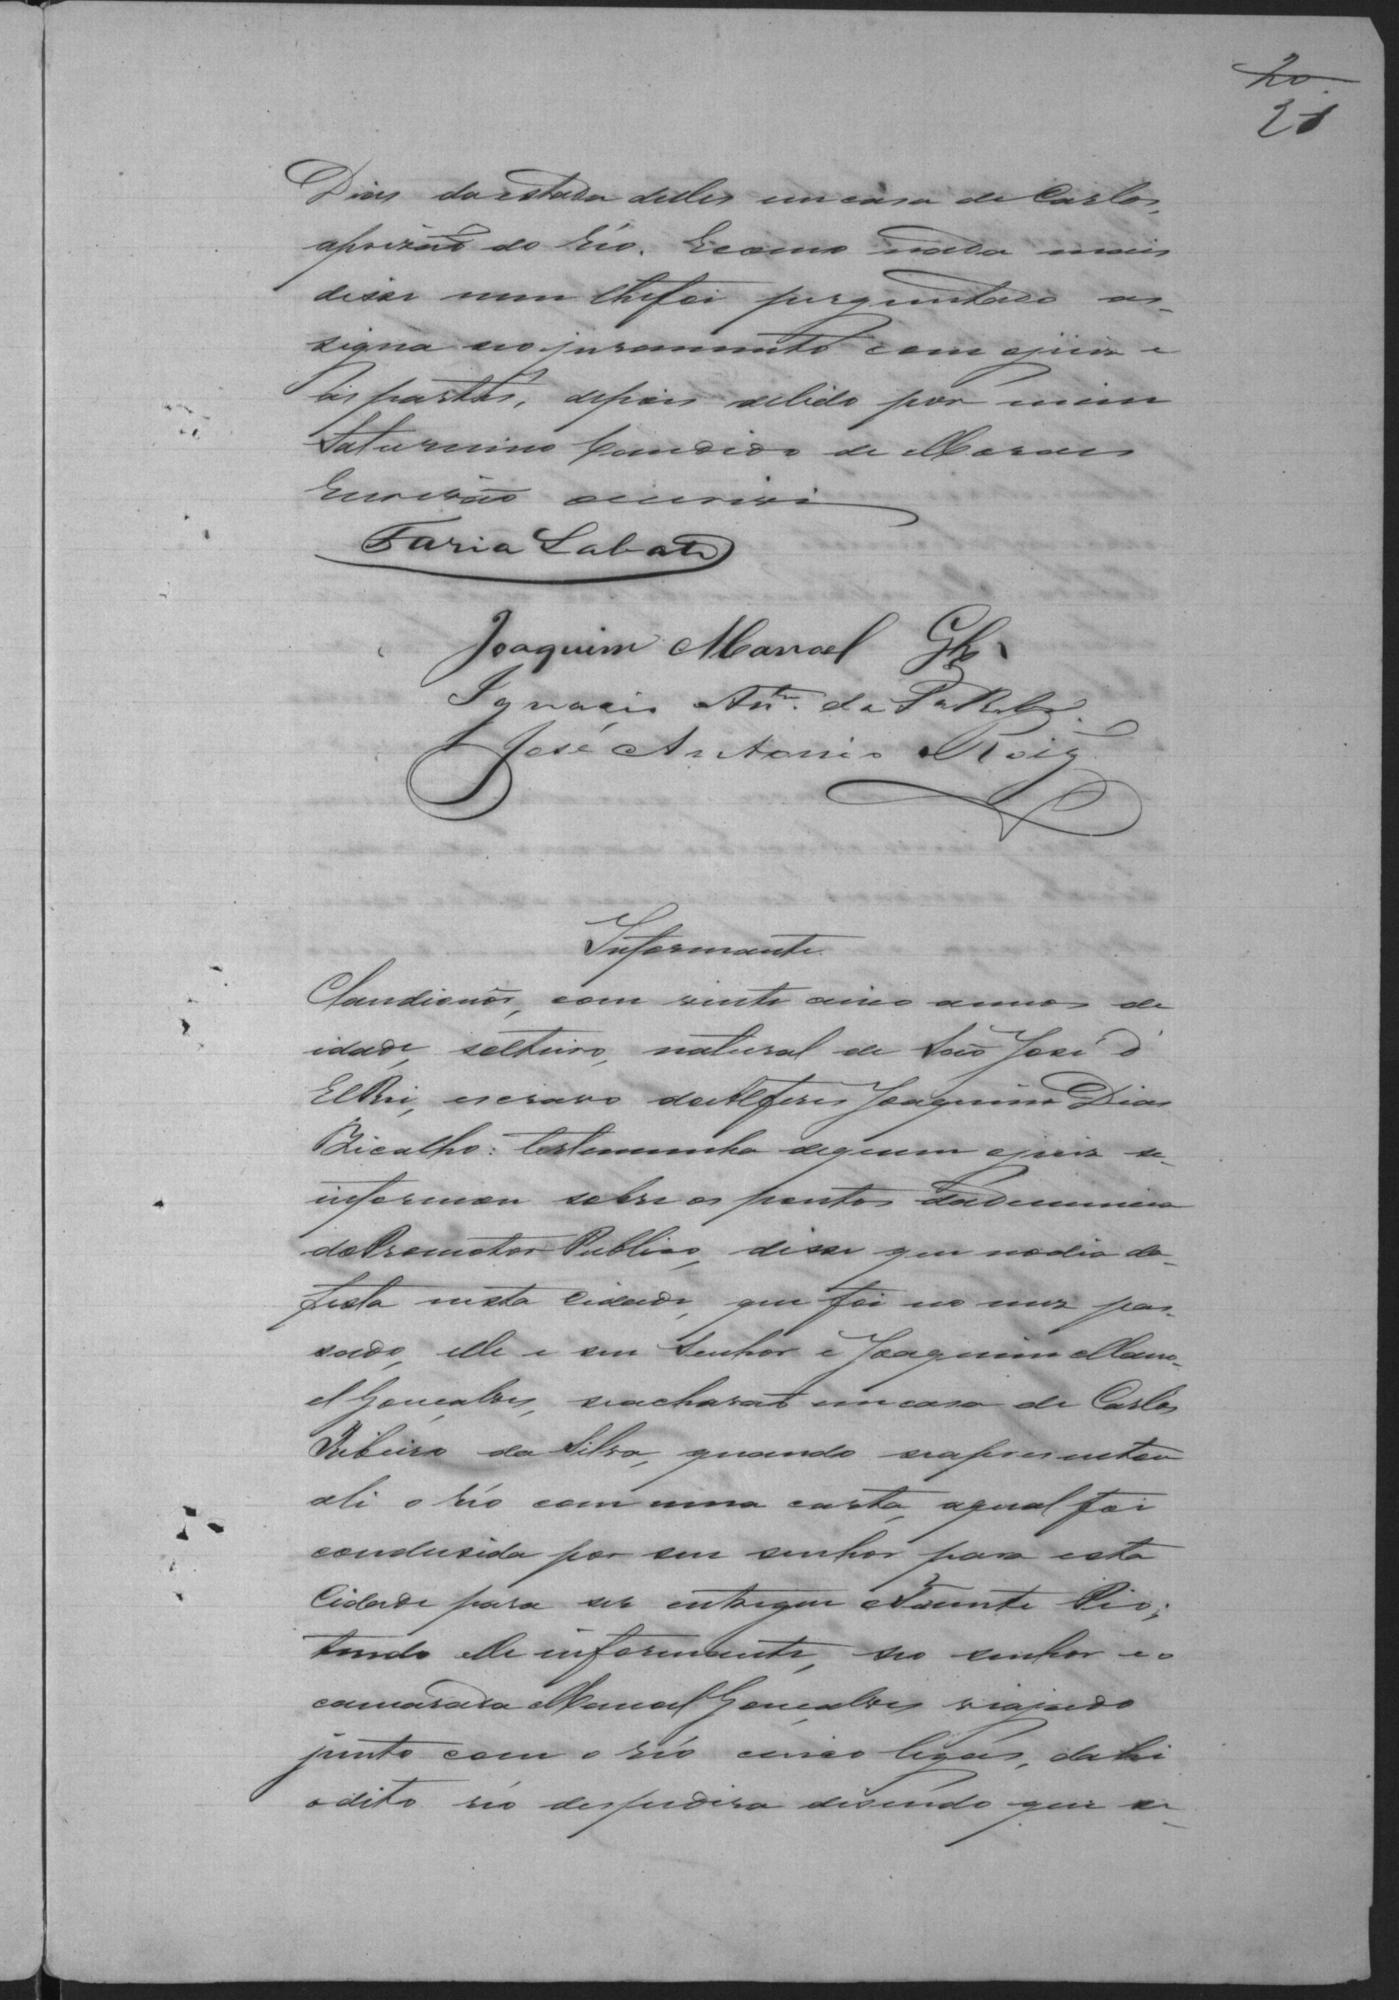 20
21
Dias da estada delles em casa de Carlos,
aprizão do réo. E como nada mais
disse nem lhe foi perguntado as-
signa seo juramento com o juiz e
as partes, depois de lido por mim
Saturnino Candido de Moraes
Escrivão o escrivi
Faria Lobato
Joaquim Manoel Glz
Ignacio Anto. da Sa
José Antonio Roiz
Informante
Claudionôr, com vinte cinco annos de
idade, solteiro, natural de São José d'
El Rei, escravo do Alferes Joaquim Dias
Bicalho: testemunha de quem o juiz se
informou sobre os pontos da denuncia
do Promotor Publico, disse que no dia da
festa nesta Cidade, que foi no mez pas-
sado, elle e seu Senhor e Joaquim Mano-
el Gonçalves, se acharão em casa de Carlos
Ribeiro da Silva, quando se apresentou
ali o réo com uma carta, a qual foi
condusida por seu senhor para esta
Cidade para ser entregue a Vicente Pio;
tendo elle informante, seo senhor e o
camarada Manoel Gonçalves viajado
junto com o réo cinco legoas, dahi
o dito réo despedira disendo que se-